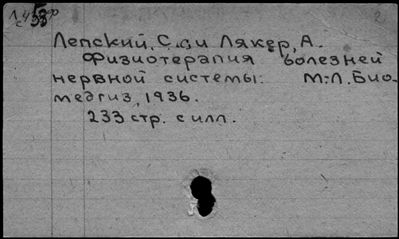 Лепский, С. и Лякер, А.
Физиотерапия болезней
нервной системы. М.-Л. Био-
медгиз, 1936.
233 стр. с илл.